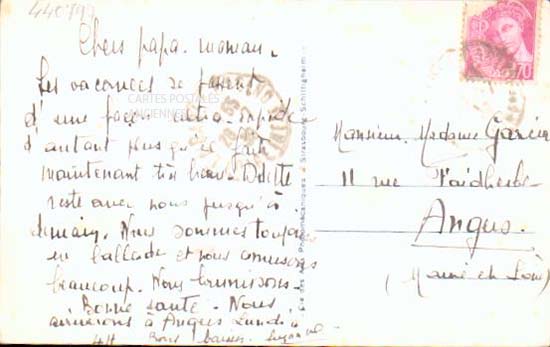 440799
Chers papa. maman.
Les vacances se passent
d'une façon ultra-rapide
d'autant plus qu'il fait
maintenant très beau. Odette
reste avec nous jusqu'à
demain. Nous sommes toujours
en ballade et nous amusons
beaucoup. Nous brunissons.
Bonne santé. Nous
arriverons à Angers Lundi à
4H Bons baisers.
CARTES POSTALES
ANCIENNES
Strasbourg-Schiltigheim
70
Monsieur. Madame Garcia
11 rue Faidherbe
Angers.
(Maine et Loire)